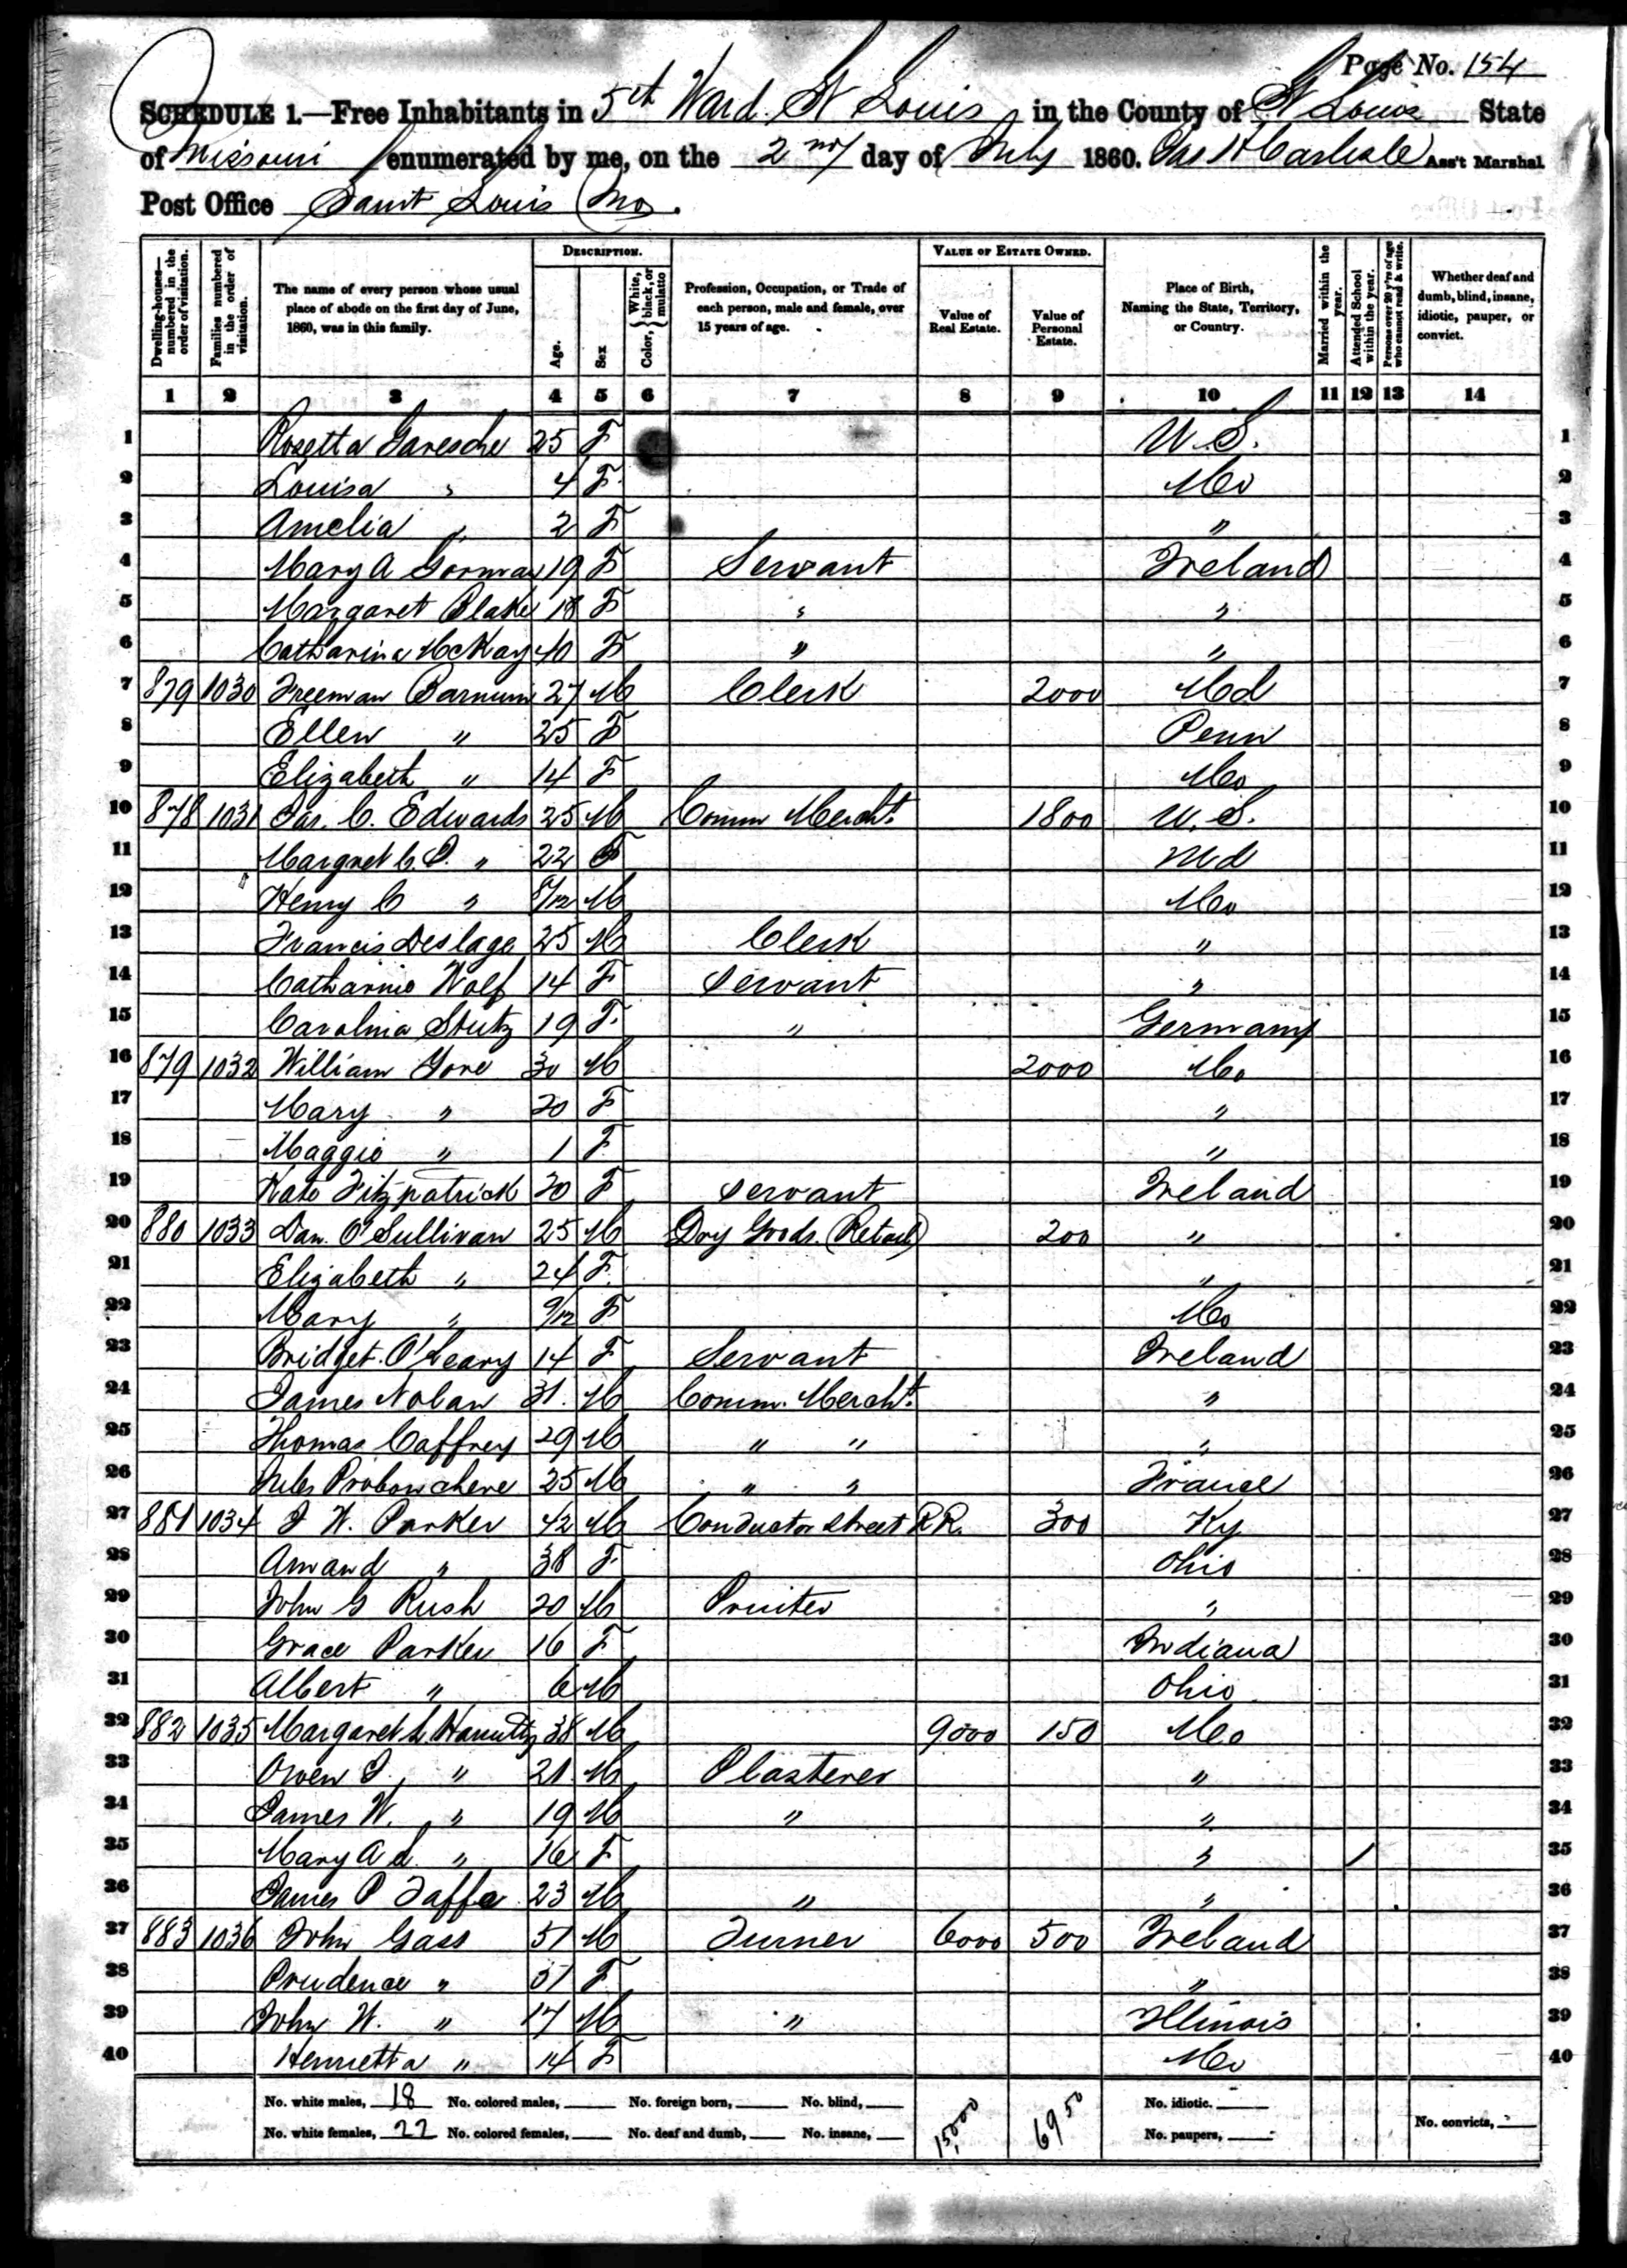 Page No. 154
SCHEDULE 1.—Free Inhabitants in 5th Ward St Louis in the County of St Louis State
of Missouri enumerated by me, on the 2nd day of July 1860. Carlisle Ass't Marshal
Post Office Saint Louis Mo.
Dwelling-houses—numbered in the order of visitation.
Families numbered in the order of visitation.
The name of every person whose usual place of abode on the first day of June, 1860, was in this family.
DESCRIPTION.
Age.
Sex
Color, White, black, or mulatto
Profession, Occupation, or Trade of each person, male and female, over 15 years of age.
VALUE OF ESTATE OWNED.
Value of Real Estate.
Value of Personal Estate.
Place of Birth, Naming the State, Territory, or Country.
Married within the year.
Attended School within the year.
Persons over 20 y'rs of age who cannot read & write.
Whether deaf and dumb, blind, insane, idiotic, pauper, or convict.
1 2 3 4 5 6 7 8 9 10 11 12 13 14
1 Rosetta Garesche 25 F U.S. 1
2 Louisa " 4 F Mo 2
3 Amelia " 2 F " 3
4 Mary A Gorman 19 F Servant Ireland 4
5 Margaret Blake 18 F " " 5
6 Catharina McKay 40 F " " 6
7 879 1030 Freeman Barnum 27 M Clerk 2000 Md 7
8 Ellen " 25 F Penn 8
9 Elizabeth " 14 F Mo 9
10 878 1031 Jas. C. Edwards 25 M Comm Mercht. 1800 U.S. 10
11 Margret C. P. " 22 F Md 11
12 Henry C " 8/12 M Mo 12
13 Francis Desloge 25 M Clerk " 13
14 Catharine Wolf 14 F Servant " 14
15 Carolina Stutz 19 F. " Germany 15
16 879 1032 William Gore 30 M 2000 Mo 16
17 Mary " 20 F " 17
18 Maggie " 1 F " 18
19 Kate Fitzpatrick 20 F Servant Ireland 19
20 880 1033 Dan. O'Sullivan 25 M Dry Goods. (Retail) 200 " 20
21 Elizabeth " 24 F. " 21
22 Mary " 9/12 F Mo 22
23 Bridget O'Leary 14 F Servant Ireland 23
24 James Nolan 31. M Comm. Mercht. " 24
25 Thomas Caffrey 29 M " " " 25
26 Jules 25 M " " France 26
27 881 1034 J W. Parker 42 M Conductor Street RR. 300 Ky 27
28 Amand " 38 F. Ohio 28
29 John G Rush 20 M Printer " 29
30 Grace Parker 16 F Indiana 30
31 Albert " 6 M Ohio 31
32 882 1035 Margaret 38 M 9000 150 Mo 32
33 Owen J. " 21 M Plasterer " 33
34 James W. " 19 M " " 34
35 Mary A L. " 16 F " / 35
36 James P Taffe 23 M " " 36
37 883 1036 John Gass 51 M Turner 6000 500 Ireland 37
38 Prudence " 51 F " 38
39 John W. " 17 M " Illinois 39
40 Henrietta " 14 F Mo 40
No. white males, 18 No. colored males, No. foreign born, No. blind, 15,000 6950 No. idiotic.
No. white females, 22 No. colored females, No. deaf and dumb, No. insane, No. paupers, No. convicts,